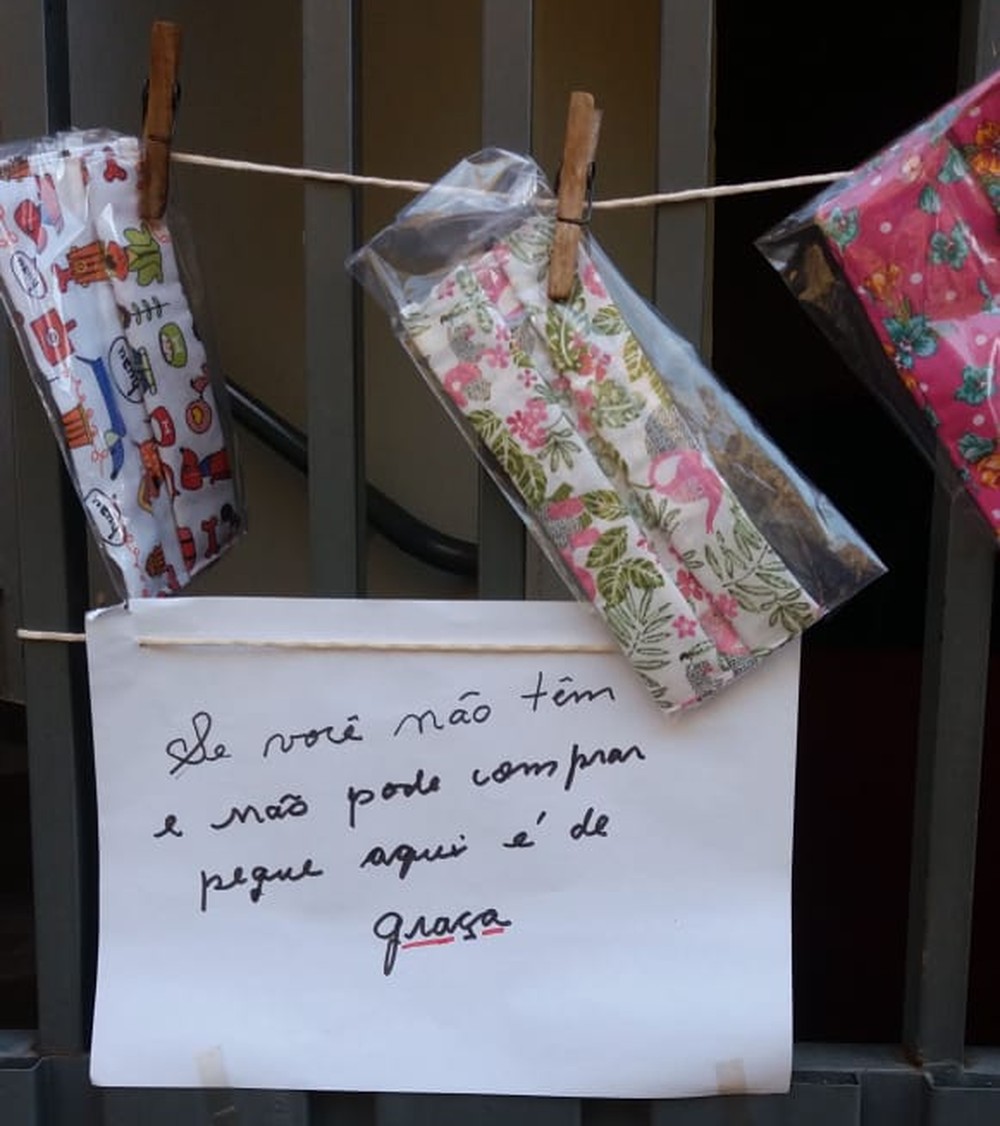 Se você não têm
e não pode comprar
pegue aqui é de
graça